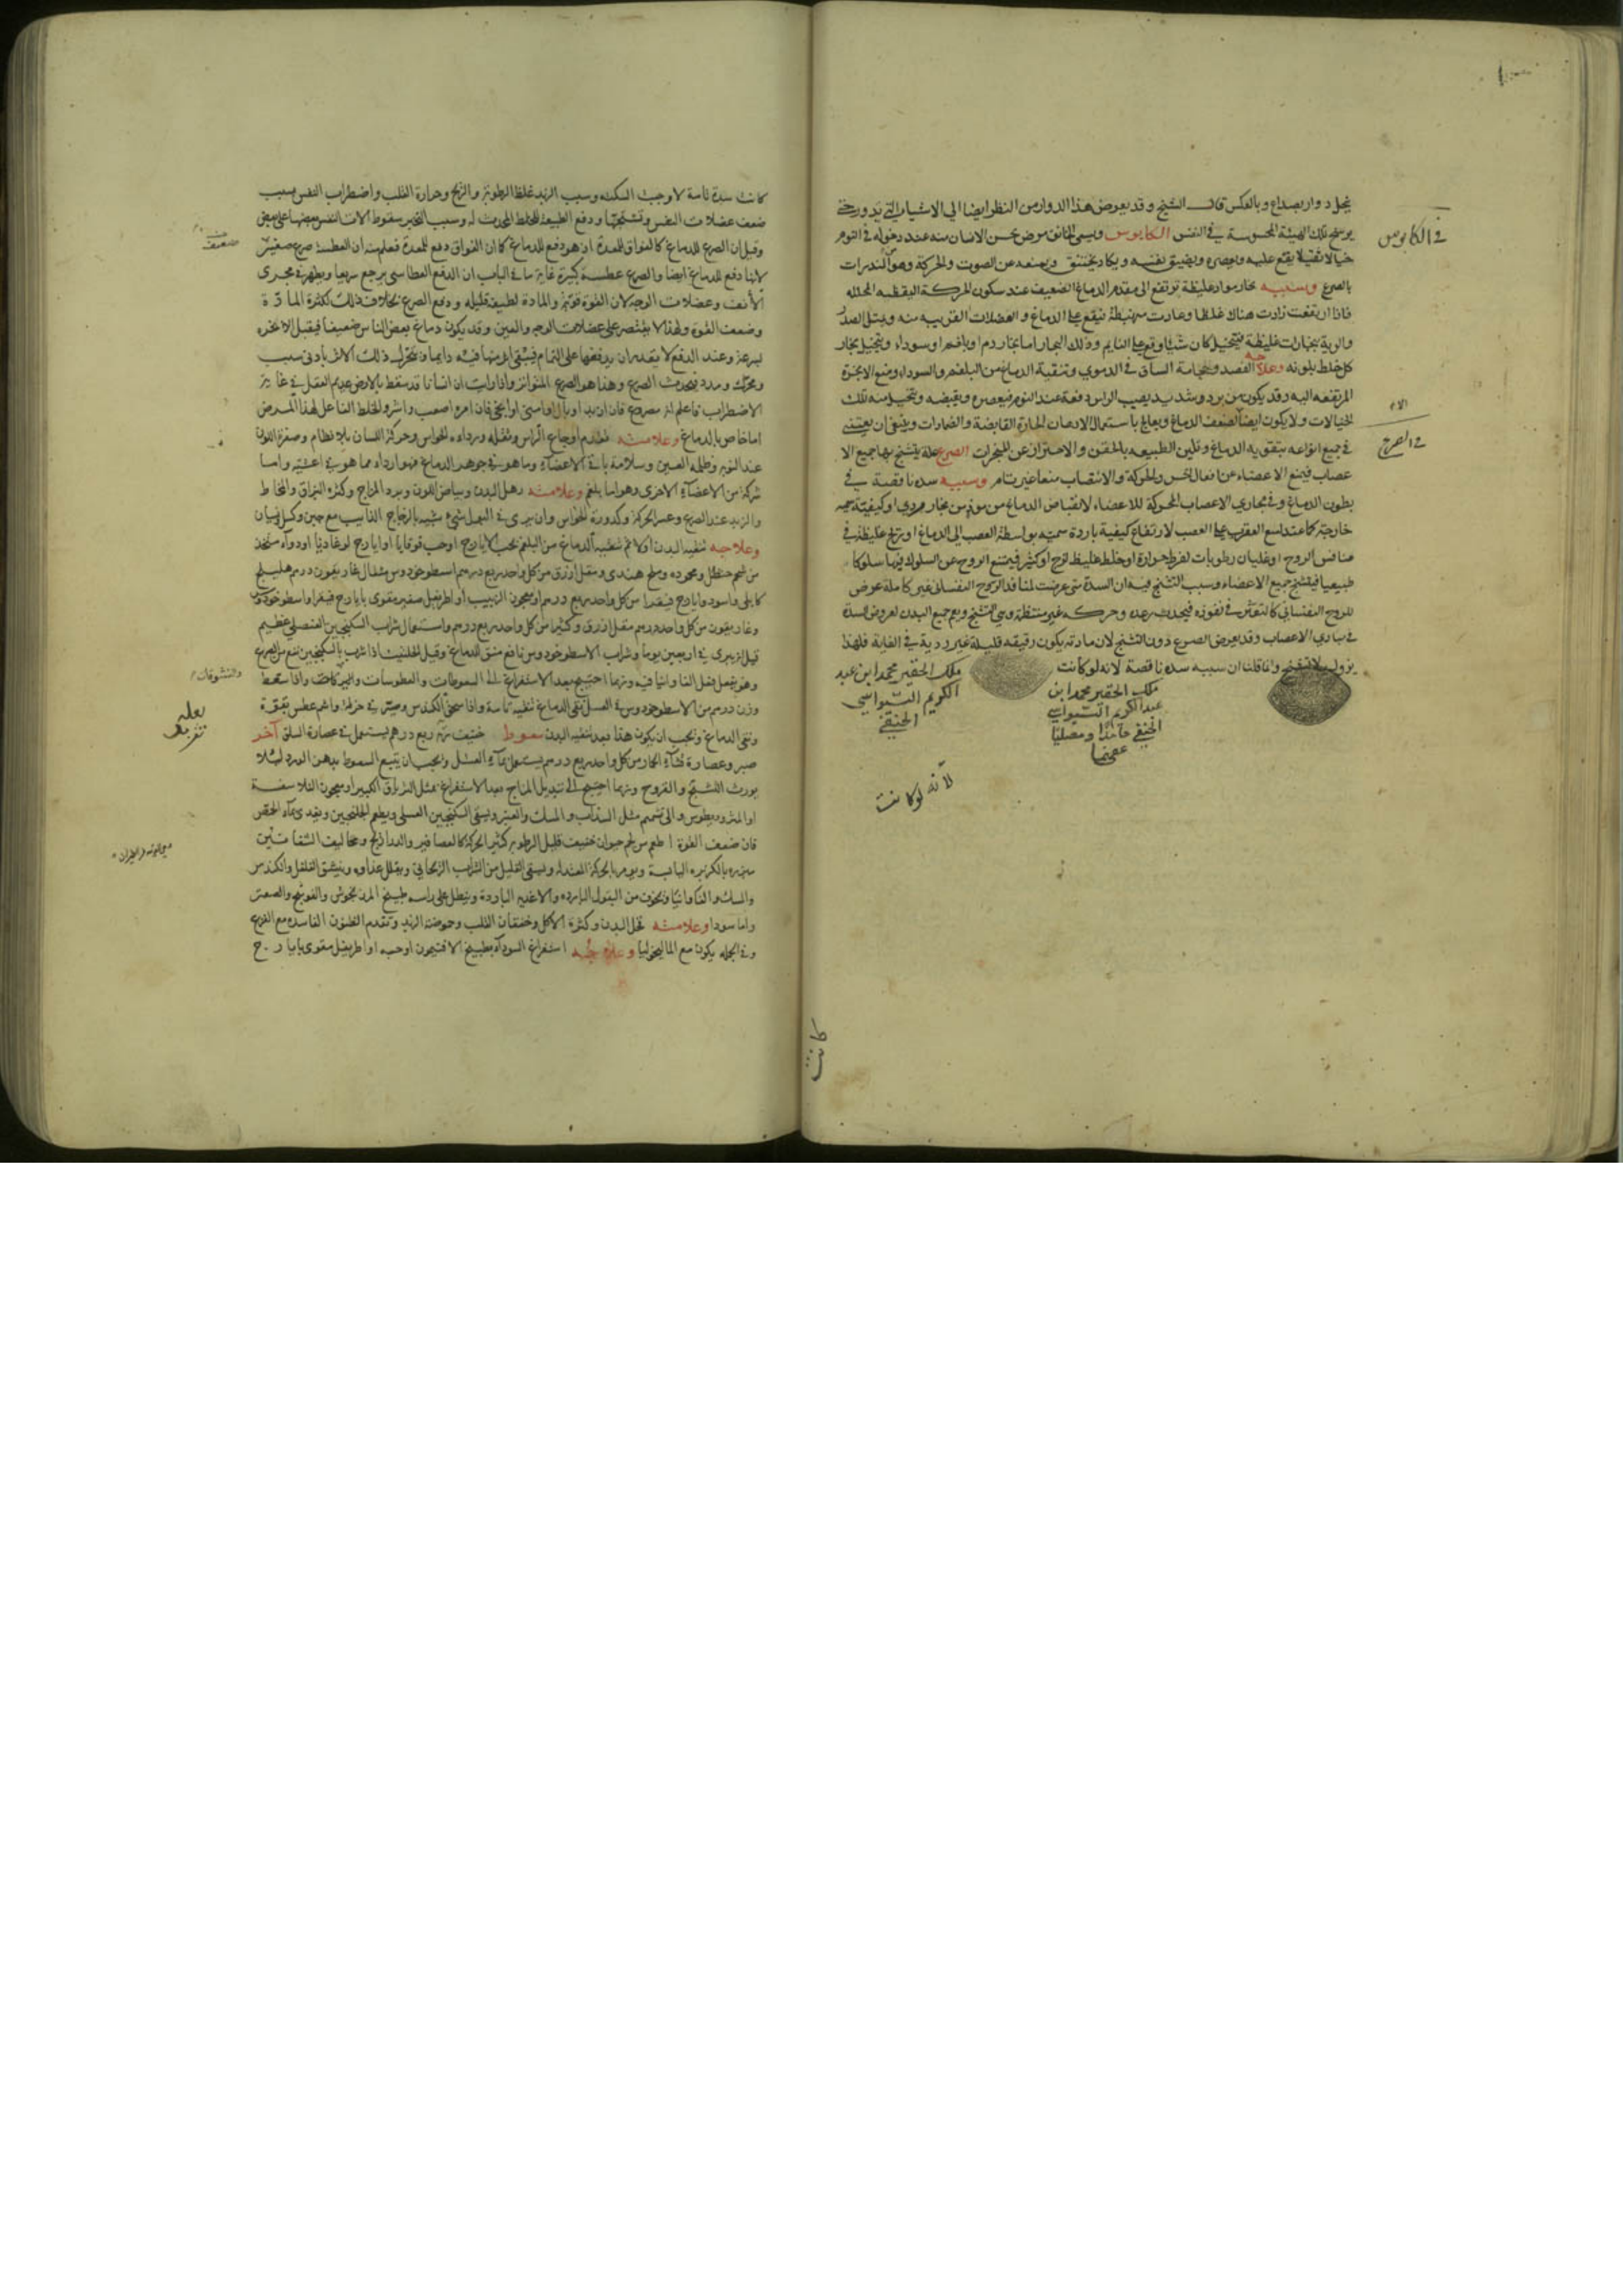 ينحل دوار بصداع وبالعكس قال الشيخ وقد يعرض هذا الدوار من النظر ايضا الى الاشياء التي تدور حتى
يرسخ تلك الهيئة المحسوسة في النفس الكابوس ويسمى الخانق مرض يحس الانسان منه عند دخوله في النوم
خيالا ثقيلا يقع عليه ويعصره ويضيق نفسه ويكاد يختنق ويمنعه عن الصوت والحركة وهو المنذرات
بالصرع وسببه بخار مواد غليظة ترتفع الى مقدم الدماغ الضعيف عند سكون الحركة اليقظيه المحلله
فاذا ارتفعت زادت هناك غلظا وعادت منهبطة فيقع على الدماغ والعضلات القريبه منه ويمتلى الصدر
والرية بخارات غليظة فيتخيل كان شيئا وقع على النايم وذلك البخار اما بخار دم او بلغم او سوداء ويتخيل بخار
كل خلط بلونه وعلاجه الفصد وحجامة الساق في الدموي وتنقية الدماغ من البلغم والسوداء ومنع الابخرة
المرتفعه اليه وقد يكون من برد شديد يصيب الراس دفعة عند النوم فيعصره ويقبضه ويتخيل منه تلك
الخيالات ولا يكون ايضا الا لضعف الدماغ ويعالج باستعمال الادهان الحارة القابضة والضمادات وينبغي ان يعتنى
في جميع انواعه بتقوية الدماغ وتليين الطبيعه بالحقن والاحتراز عن المبخرات الصرع علة يتشنج بها جميع الا
عصاب فيمنع الاعضاء عن افعال الحس والحركة والانتصاب منعا غير تام وسببه سده ناقصة في
بطون الدماغ وفي مجاري الاعصاب المحركة للاعضاء لانقباض الدماغ من موذ من بخار ردي او كيفية سميه
خارجة كما عند لسع العقرب على العصب لارتفاع كيفية باردة سميه بواسطة العصب الى الدماغ او ريح غليظة في
منافس الروح او غليان رطوبات لفرط حرارة او خلط غليظ لزج او كثير فيمتنع الروح عن السلوك فيها سلوكا
طبيعيا فيتشنج جميع الاعضاء وسبب التشنج فيه ان السدة متى عرضت لمنافذ الروح النفساني غير كاملة عرض
للروح النفساني كالتعثر في نفوذه فيحدث رعده وحركه غير منتظمة وهي التشنج ويعم جميع البدن لعروض السدة
في مبادي الاعصاب وقد يعرض الصرع دون التشنج لان مادته يكون رقيقه قليلة غير ردية في الغاية فلهذا
يزول بلا تشنج وانما قلنا ان سببه سده ناقصة لانه لو كانت
ملك الحقير محمد ابن
عبد الكريم السيواسي
الحنفي حامدا ومصليا
ملك الحقير محمد ابن عبد
الكريم السيواسي
الحنفي
لانه لو كانت
في الكابوس
في الصرع
كانت
كانت سدة تامة لاوجبت السكته وسبب الزبد غلظ الرطوبة والريح وحرارة القلب واضطراب النفس بسبب
ضعف عضلات النفس وتشنجها ودفع الطبيعة للخلط المحدث له وسبب النخير سقوط الات النفس بعضها على بعض
وقيل ان الصرع للدماغ كالفواق للمعدة اذ هو دفع للدماغ كما ان الفواق دفع للمعدة فعلم منه ان العطسة صرع صغير
لانها دفع للدماغ ايضا والصرع عطسة كبيرة غاية ما في الباب ان الدفع العطاسي يرجع سريعا ويظهر في مجرى
الانف وعضلات الوجه لان القوة قوية والمادة لطيفة قليله ودفع الصرع بخلاف ذلك لكثرة المادة
وضعف القوة ولهذا لا يقتصر على عضلات الوجه والعين وقد يكون دماغ بعض الناس ضعيفا فيقبل الابخره
بسرعة وعند الدفع لا يقدر ان يدفعها على التمام فيبقى اثر منها فيه دايما ويتحرك ذلك الاثر بادنى سبب
ومحرك ومدد فيحدث الصرع وهذا هو الصرع المتواتر واذا رايت ان انسانا قد سقط بالارض عديم العقل في غاية
الاضطراب فاعلم انه مصروع فان ازبد او بال او امنى او انجى فان امره اصعب واشر والخلط الفاعل لهذا المرض
اما خاص بالدماغ وعلامته تقدم اوجاع الراس وثقله ورداءة الحواس وحركة اللسان بلا نظام وصفرة اللون
عند النوبه وظلمة العين وسلامة باقي الاعضاء وما هو في جوهر الدماغ فهو اردا مما هو في اغشيته واما
شركة من الاعضاء الاخرى وهو اما بلغم وعلامته رهل البدن وبياض اللون وبرد المزاج وكثرة البزاق والمخاط
والزبد عند الصرع وعسر الحركة وكدورة الحواس وان يرى في البول شيء شبيه بالزجاج الذايب مع جبن وكسل ونسيان
وعلاجه تنقيه البدن اولا ثم تنقية الدماغ من البلغم بحب الايارج او حب قوقايا او ايارج لوغاديا او دواء متخذ
من شحم حنظل ومحموده وملح هندي ومقل ازرق من كل واحد ربع درهم اسطوخودوس مثقال غاريقون درهم هليلج
كابلي واسود وايارج فيقرا من كل واحد ربع درهم ومعجون الزبيب او اطريفل صغير مقوى بايارج فيقرا واسطوخودوس
وغاريقون من كل واحد درهم مقل ازرق وكثيرا من كل واحد ربع درهم واستعمال شراب السكنجبين العنصلي عظيم
قيل انه يبرى في اربعين يوما وشراب الاسطوخودوس نافع منق للدماغ وقيل الحلتيت اذا شرب بالسكنجبين نفع من الصرع
وهو يفعل فعل الفاوانيا فيه وربما احتيج بعد الاستفراغ الى السعوطات والعطوسات واذا سعط
وزن درهم من الاسطوخودوس في العسل نقى الدماغ تنقيه تامة واذا سحق الكندس وصير في خرقه واشم عطس بقوة
ونقى الدماغ ويجب ان يكون هذا بعد تنقيه البدن سعوط خفيف ربع درهم يستعمل في عصارة السلق آخر
صبر وعصارة قثاء الحمار من كل واحد ربع درهم يستعمل بماء العسل ويجب ان يتبع السعوط بدهن الورد لئلا
يورث التشنج والقروح وربما احتيج الى تبديل المزاج بعد الاستفراغ بمثل الترياق الكبير او معجون البلاسفة
او المثروديطوس والى تشمم مثل السذاب والمسك والعنبر ويسقى السكنجبين العسلي ويطعم الجلنجبين ويغذى بماء الحمص
فان ضعف القوة اطعم من لحم حيوان خفيف قليل الرطوبه كثير الحركة كالعصافير والدراريج
مبزره بالكزبره اليابسة ويومر بالحركة المعتدله ويسقى القليل من الشراب الريحاني ويقلل غذاوه وينشق الفلفل والكندس
والمسك والفاوانيا ويجوف من البقول البارده والاغذيه الباردة وينطل على راسه طبيخ المرزنجوش والفوتنج والصعتر
واما سودا وعلامته قحل البدن وكثرة الاكل وخفقان القلب وحموضة الزبد وتقدم الظنون الفاسده مع الفزع
وفي الجمله يكون مع الماليخوليا وعلاجه استفراغ السوداء بطبيخ الافتيمون او حبه او اطريفل مقوى بايارج
ضعف
والنشوقات